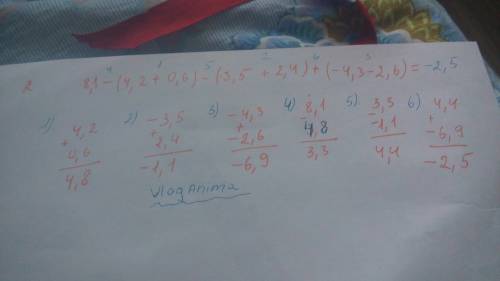 4 1 5 2 6 3
2 8,1-(4,2+0,6)-(3,5+2,4)+(-4,3-2,6)=-2,5
1) 2) 3) 4) 5) 6)
4,2 -3,5 -4,3 8,1 3,3 4,4
+ + + - - +
0,6 2,4 -2,6 4,8 -1,1 -6,9
4,8 -1,1 -6,9 3,3 4,4 -2,5
VlogAnima